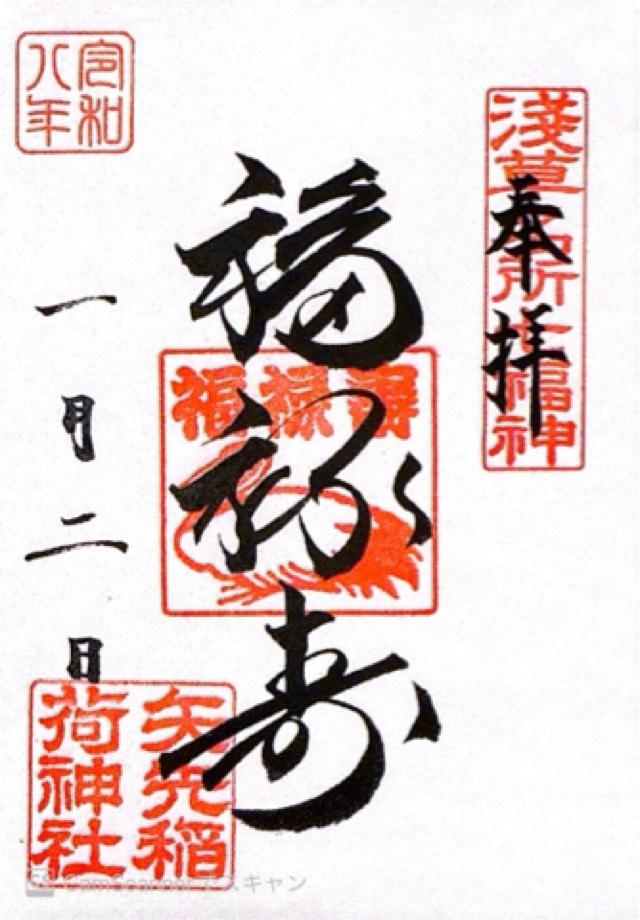 淺草名所七福神
奉拝
福禄寿
福禄寿
令和八年
一月二日
矢先稲荷神社
CamScanner でスキャン